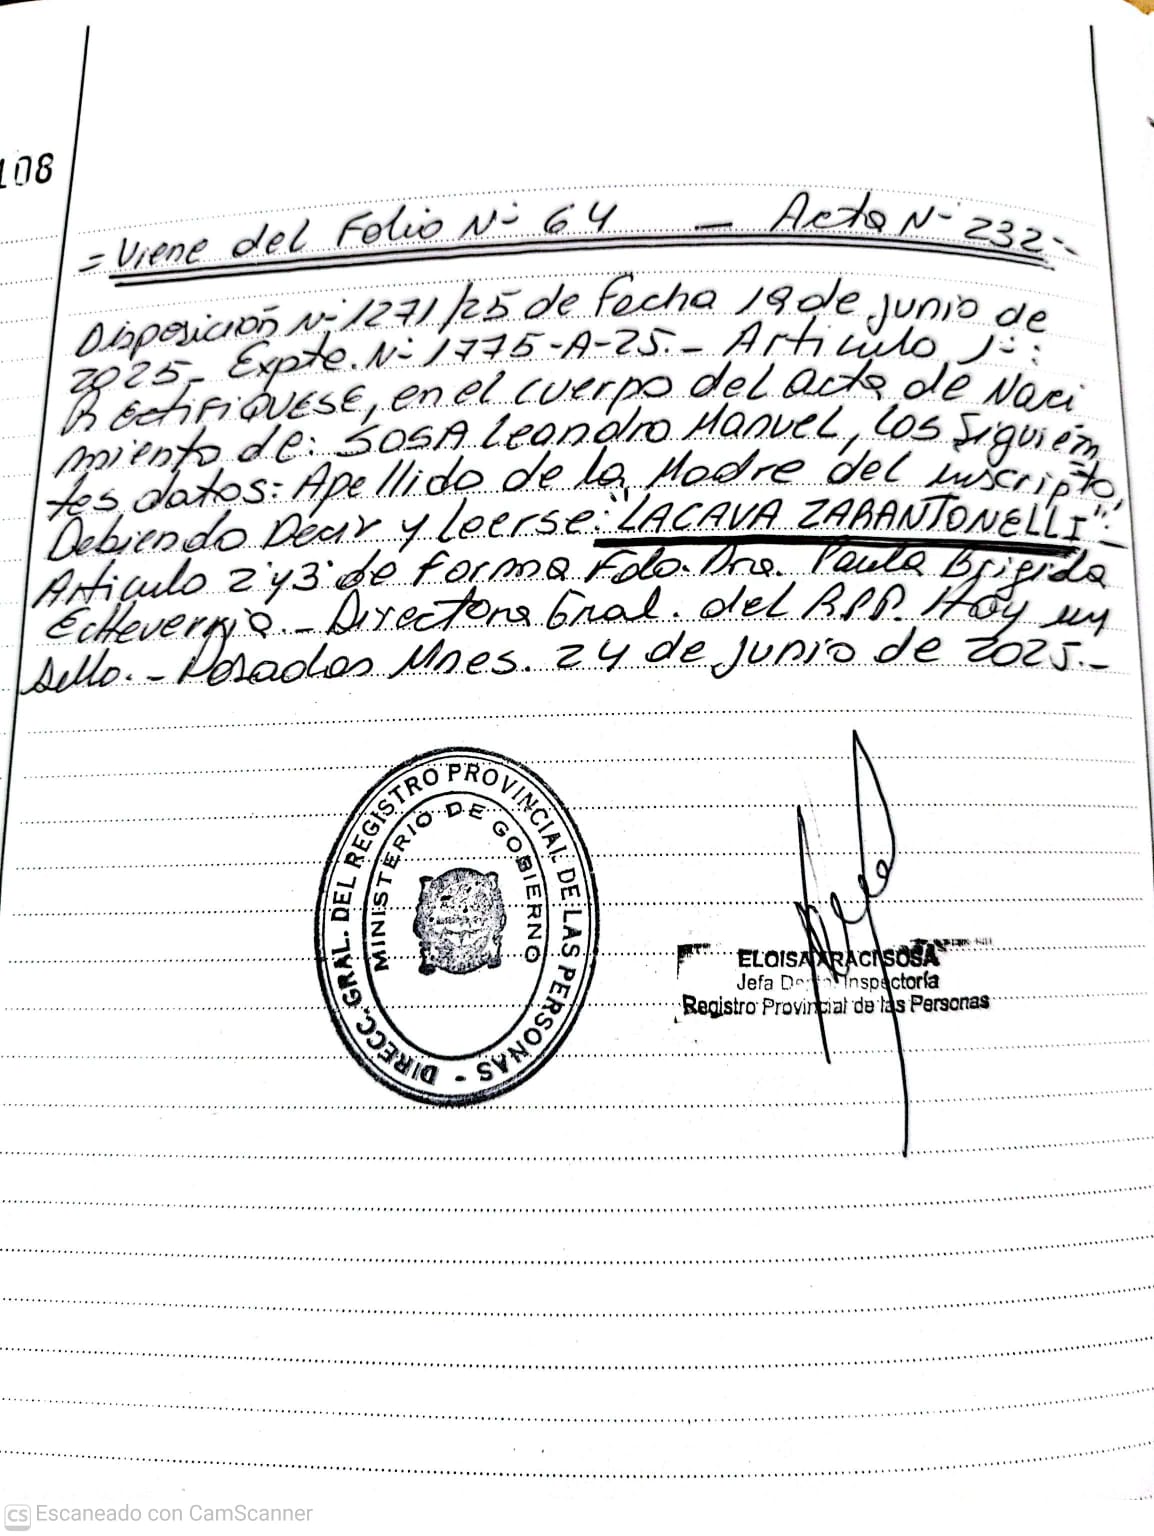 108
= Viene del Folio Nº 64 — Acta Nº 232-.
Disposición Nº 1271/25 de fecha 19 de junio de
2025_ Expte. Nº 1775-A-25.- Articulo 1º:
RECTIFIQUESE, en el cuerpo del acta de Naci
miento de: SOSA Leandro Manuel, los siguien
tes datos: Apellido de la Madre del inscripto,
Debiendo Decir y leerse: "LACAVA ZARANTONELLI".-
Articulo 2º y 3º de forma Fdo. Dra. Paula Brigida
Echeverria.- Directora Gral. del R.P.P. Hay un
sello.- Posadas Mnes. 24 de junio de 2025.-
DIRECC. GRAL. DEL REGISTRO PROVINCIAL DE LAS PERSONAS -
MINISTERIO DE GOBIERNO
ELOISA ARACI SOSA
Jefa Inspectoría
Registro Provincial de las Personas
CS Escaneado con CamScanner